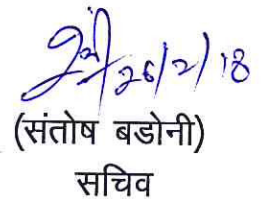 26/2/18
(संतोष बडोनी)
सचिव